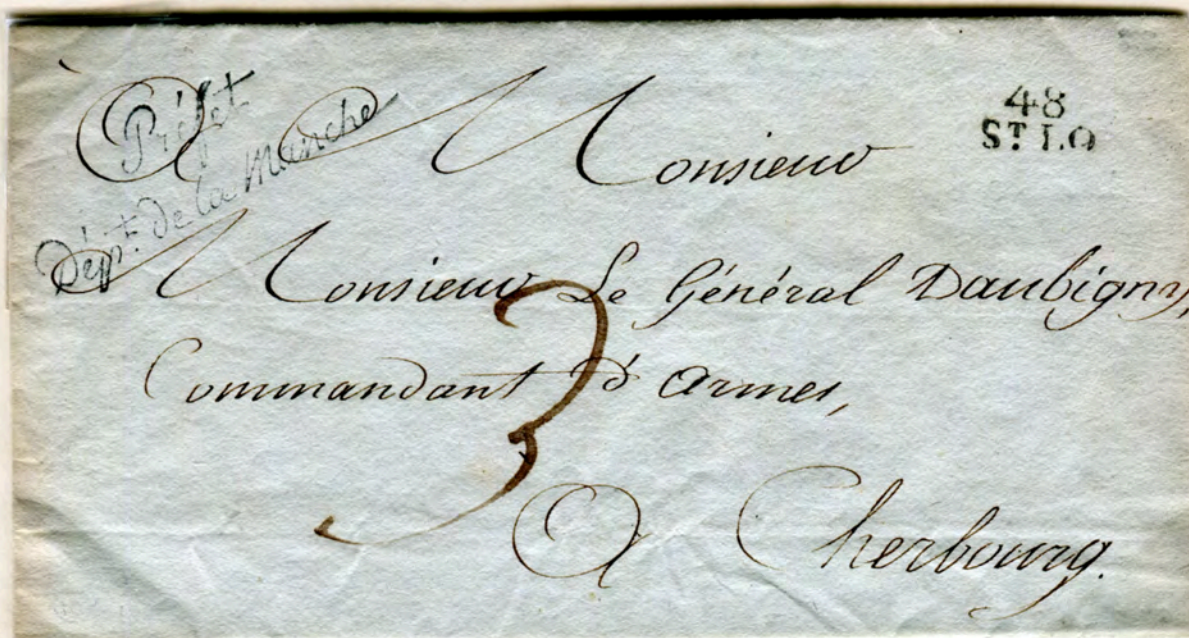 Préfet
Dépt. de la Manche
48
ST. LO
Monsieur
Monsieur Le Général Daubigny,
Commandant d'Armes,
3
A Cherbourg.